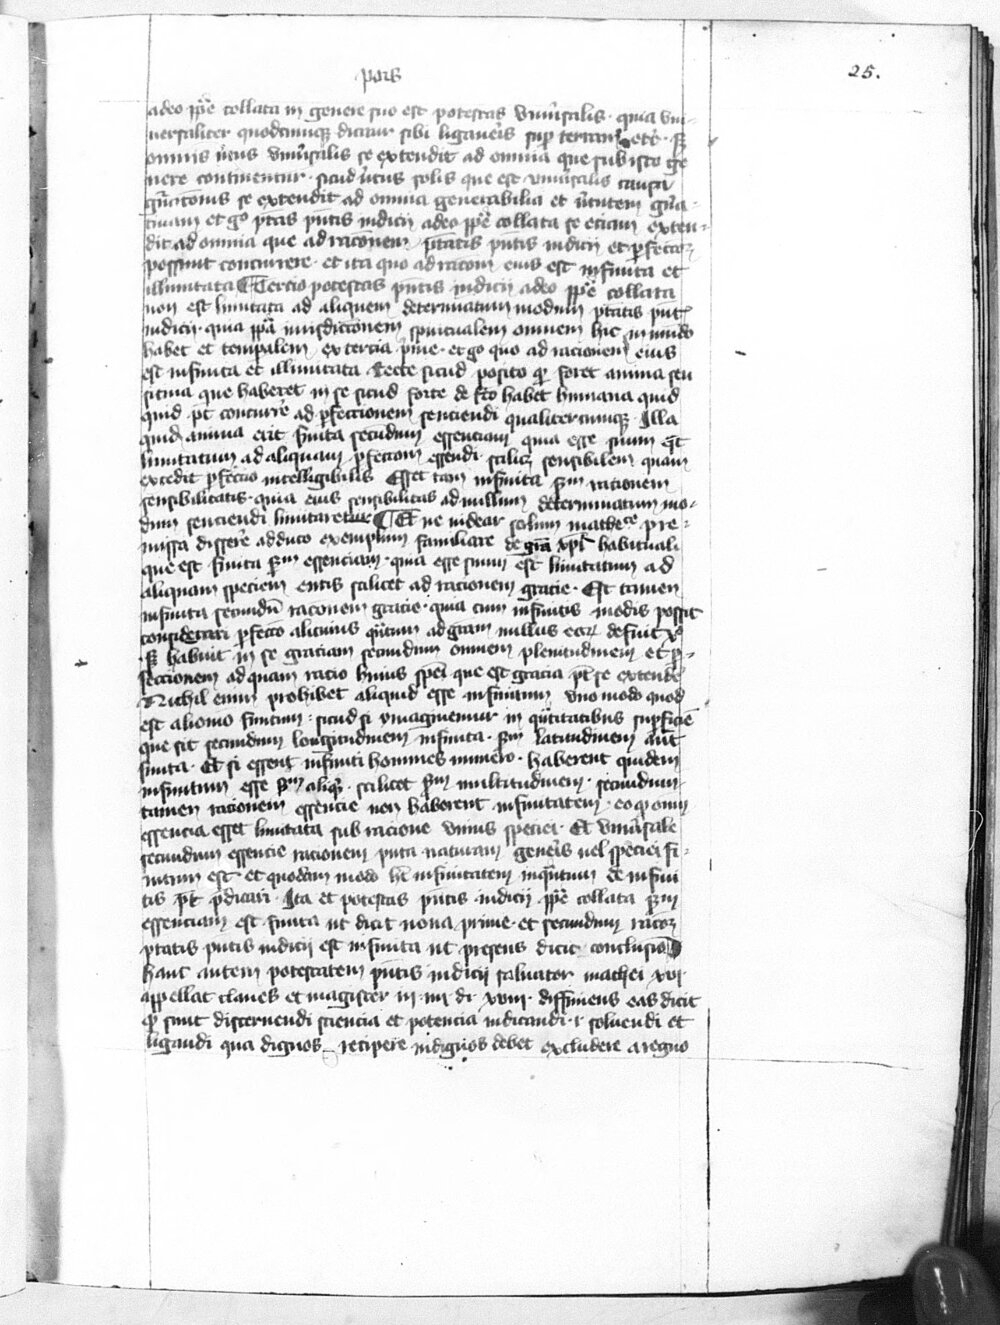 pars
25.
adeo ppē collata in genere suo est potestas vniūsalis · quia vni-
uersaliter quodcumqꝫ dicatur sibi ligaueris sup terram etc̄ · sꝫ
omnis ūtus vniūsalis se extendit ad omnia que sub isto ge
nere continentur · sicud ūtus solis que est vniūsalis causa
gn̄acōnis se extendit ad omnia generabilia et ūtutem gn̄a-
tiuam et gͦ ptās pn̄tis iudicii adeo ppē collata se eciam exten-
dit ad omnia que ad racōnem ptātis pn̄tis iudicii et pfectōꝫ
possunt concurrere · et ita quo ad racōm eius est infinita et
illimitata ¶ Tercio potestas pn̄tis iudicii adeo ppē collata
non est limitata ad aliquem determinatum modum ptātis pn̄t
iudicii · quia ppā iurisdiccōnem spiritualem omnem hic in mundo
habet et tempalem ex tercia p̄me · et gͦ quo ad racionem eius
est infinita et illimitata Recte sicud posito qꝫ foret anima sen
sitiua que haberet in se sicud forte de fcō habet humana quid
quid pt̄ concurrē ad pfeccionem senciendi qualitercumqꝫ Illa
quidē anima erit finita secundum essenciam quia esse suum est
limitatum ad aliquam pfectōm essendi · scilicꝫ sensibilem quam
excedit pfectio intelligibilis Esset tam̄ infinita scd̄m rationem
sensibilitatis · quia eius sensibilitas ad nullum determinatum mo-
dum senciendi limitaretur ¶ Et ne videar solum mathe͞ce pre-
missa disserē adduco exemplum familiare de gr̄a xp̄i habituali
que est finita scd̄m essenciam · quia esse suum est limitatum ad
aliquam speciem entis scilicet ad racionem gracie · Est tamen
infinita secundū racōnem gracie · quia cum infinitis modis possit
considerari pfectō alicuius qn̄tum ad grām nullus eoꝝ defuit xͦ
sꝫ habuit in se graciam secundum omnem plenitudinem et p-
feccionem ad quam racio huius spēi que est gracia pt̄ se extendē
Nichil enim prohibet aliquid esse infinitum vno modo quod
est alio modo finitum · sicud si ymaginemur in qn̄titatibus supficiē
que sit secundum longitudinem infinita · scd̄m latitudinem aut̄
finita · Et si essent infiniti homines numero · haberent quidem
infinitum esse scd̄m aliqͥd · scilicet scd̄m multitudinem · secundum
tamen racionem essencie non haberent infinitatem · eo qꝫ omīs
essencia esset limitata sub racione vnius speciei · Et vniūsale
secundum essencie racionem puta naturam generis uel speciei fi-
nitum est · et quodam modo ht̄ infinitatem inqn̄tum de infini
tis pt̄ p̄dicari · Ita et potestas pn̄tis iudicii ppē collata scd̄m
essenciam est finita ut dicit nona prime · et secundum racōꝫ
ptātis pn̄tis iudicii est infinita ut presens dicit conclusio
hanc autem potestatem pn̄tis iudicii saluator mathei xvi
appellat claues et magister in iiii di xviii · diffiniens eas dicit
qꝫ sunt discernendi sciencia et potencia iudicandi · i · soluendi et
ligandi qua dignos recipere indignos debet excludere a regno